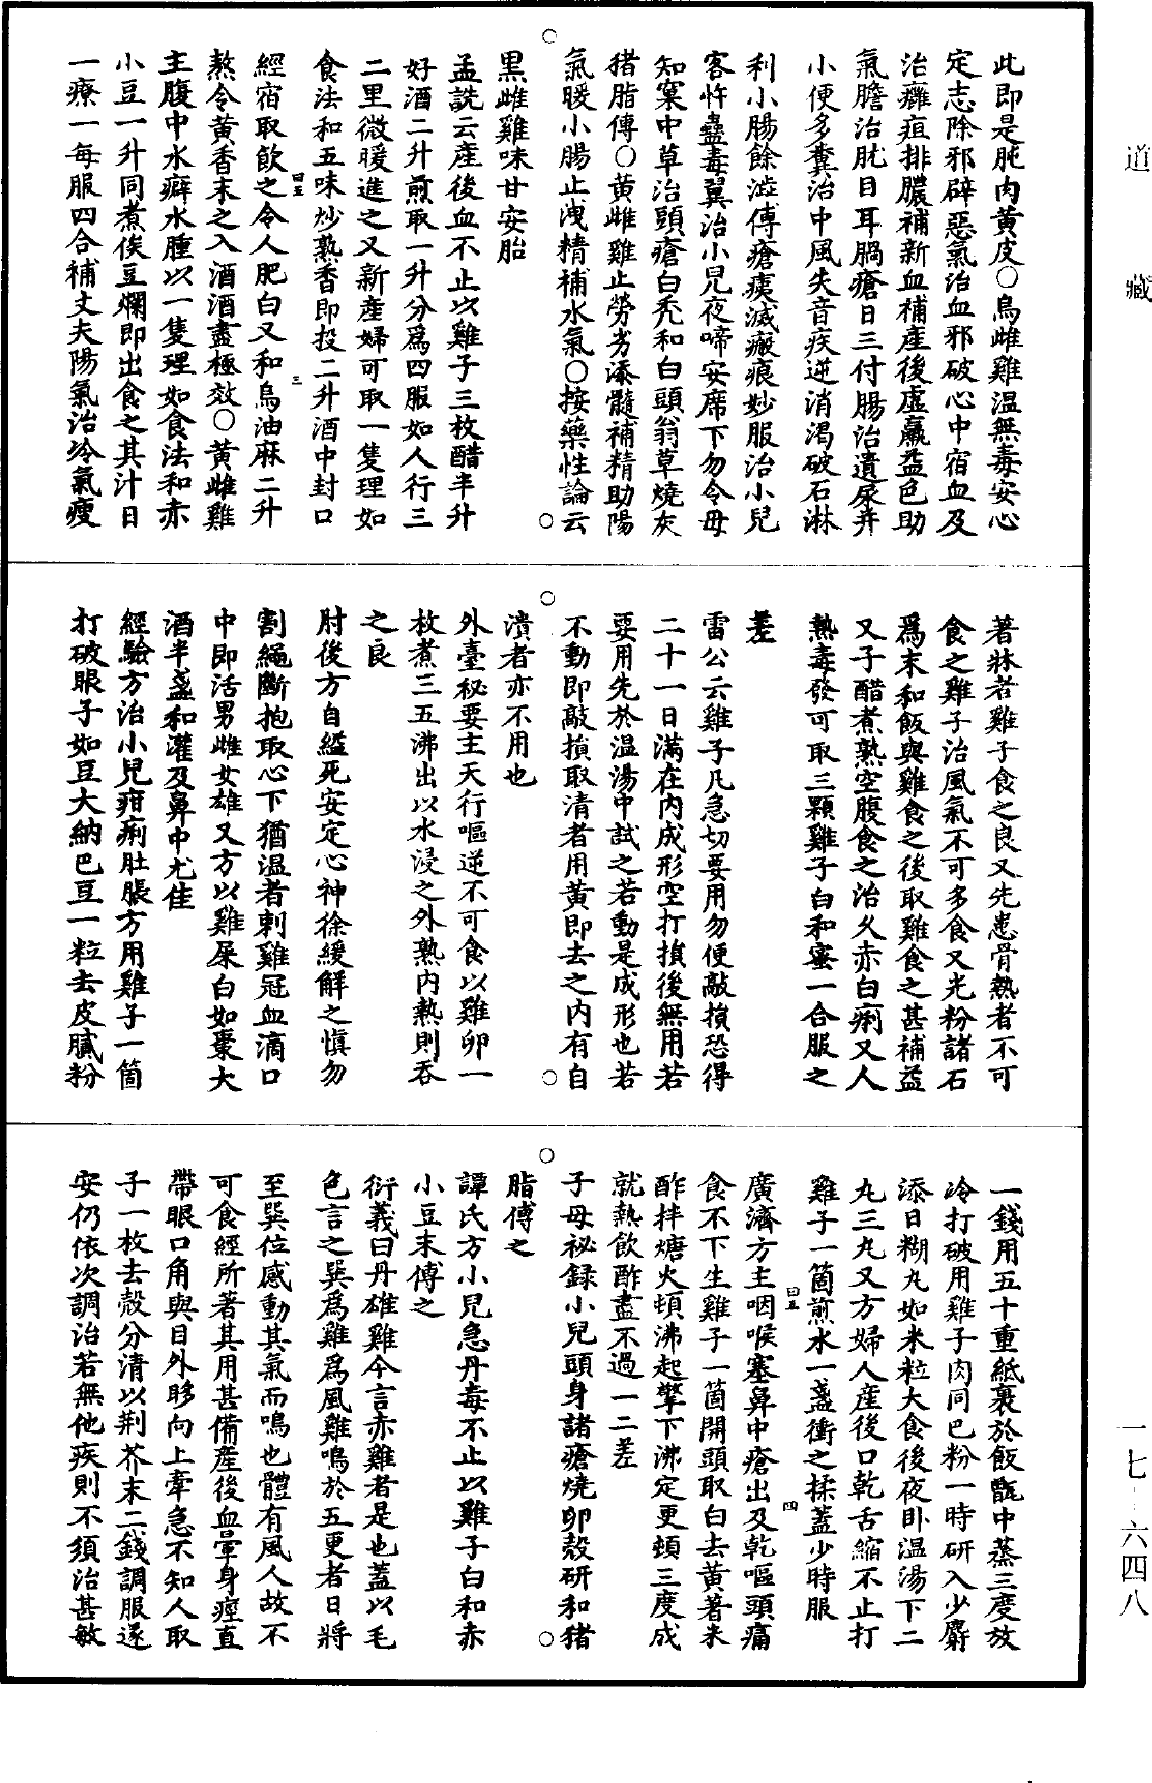 道藏
此即是肫内黄皮○烏雌雞温無毒安心
定志除邪辟惡氣治血邪破心中宿血及
治癰疽排膿補新血補産後虛羸益色助
氣膽治肬目耳䐡瘡日三付腸治遺尿并
小便多糞治中風失音疾逆消渴破石淋
利小腸餘瀝傅瘡痍滅瘢痕妙服治小兒
客忤蠱毒翼治小兒夜啼安席下勿令母
知窠中草治頭瘡白禿和白頭翁草燒灰
猪脂傅○黄雌雞止勞劣添髓補精助陽
氣暖小腸止洩精補水氣○按藥性論云
黑雌雞味甘安胎
孟詵云産後血不止以雞子三枚醋半升
好酒二升煎取一升分爲四服如人行三
二里微暖進之又新産婦可取一隻理如
食法和五味炒熟香即投二升酒中封口
經宿取飲之令人肥白又和烏油麻二升
熬令黄香末之入酒酒盡極效○黄雌雞
主腹中水癖水腫以一隻理如食法和赤
小豆一升同煮俟豆爛即出食之其汁日
一療一每服四合補丈夫陽氣治冷氣瘦
著牀者雞子食之良又先患骨熱者不可
食之雞子治風氣不可多食又光粉諸石
爲末和飯與雞食之後取雞食之甚補益
又子醋煮熟空腹食之治久赤白痢又人
熱毒發可取三顆雞子白和蜜一合服之
差
雷公云雞子凡急切要用勿便敲損恐得
二十一日滿在内成形空打損後無用若
要用先於温湯中試之若動是成形也若
不動即敲損取清者用黄即去之内有自
潰者亦不用也
外臺秘要主天行嘔逆不可食以雞卵一
枚煮三五沸出以水浸之外熟内熱則吞
之良
肘後方自縊死安定心神徐緩解之慎勿
割繩斷抱取心下猶温者刺雞冠血滴口
中即活男雌女雄又方以雞屎白如棗大
酒半盞和灌及鼻中尤佳
經驗方治小兒疳痢肚脹方用雞子一箇
打破眼子如豆大納巴豆一粒去皮膩粉
一錢用五十重紙裹於飯甑中蒸三度放
冷打破用雞子肉同巴粉一時研入少麝
添日糊丸如米粒大食後夜卧温湯下二
丸三丸又方婦人産後口乾舌縮不止打
雞子一箇煎水一盞衝之揉蓋少時服
廣濟方主咽喉塞鼻中瘡出及乾嘔頭痛
食不下生雞子一箇開頭取白去黄著米
酢拌煻火頓沸起擎下沸定更頓三度成
就熱飲酢盡不過一二差
子母祕録小兒頭身諸瘡燒卵殼研和猪
脂傅之
譚氏方小兒急丹毒不止以雞子白和赤
小豆末傅之
衍義曰丹雄雞今言赤雞者是也蓋以毛
色言之巽爲雞爲風雞鳴於五更者日將
至巽位感動其氣而鳴也體有風人故不
可食經所著其用甚備産後血暈身痙直
帶眼口角與目外眥向上牽急不知人取
子一枚去殼分清以荆芥末二錢調服遂
安仍依次調治若無他疾則不須治甚敏
曰五
三
曰五
四
一七-六四八